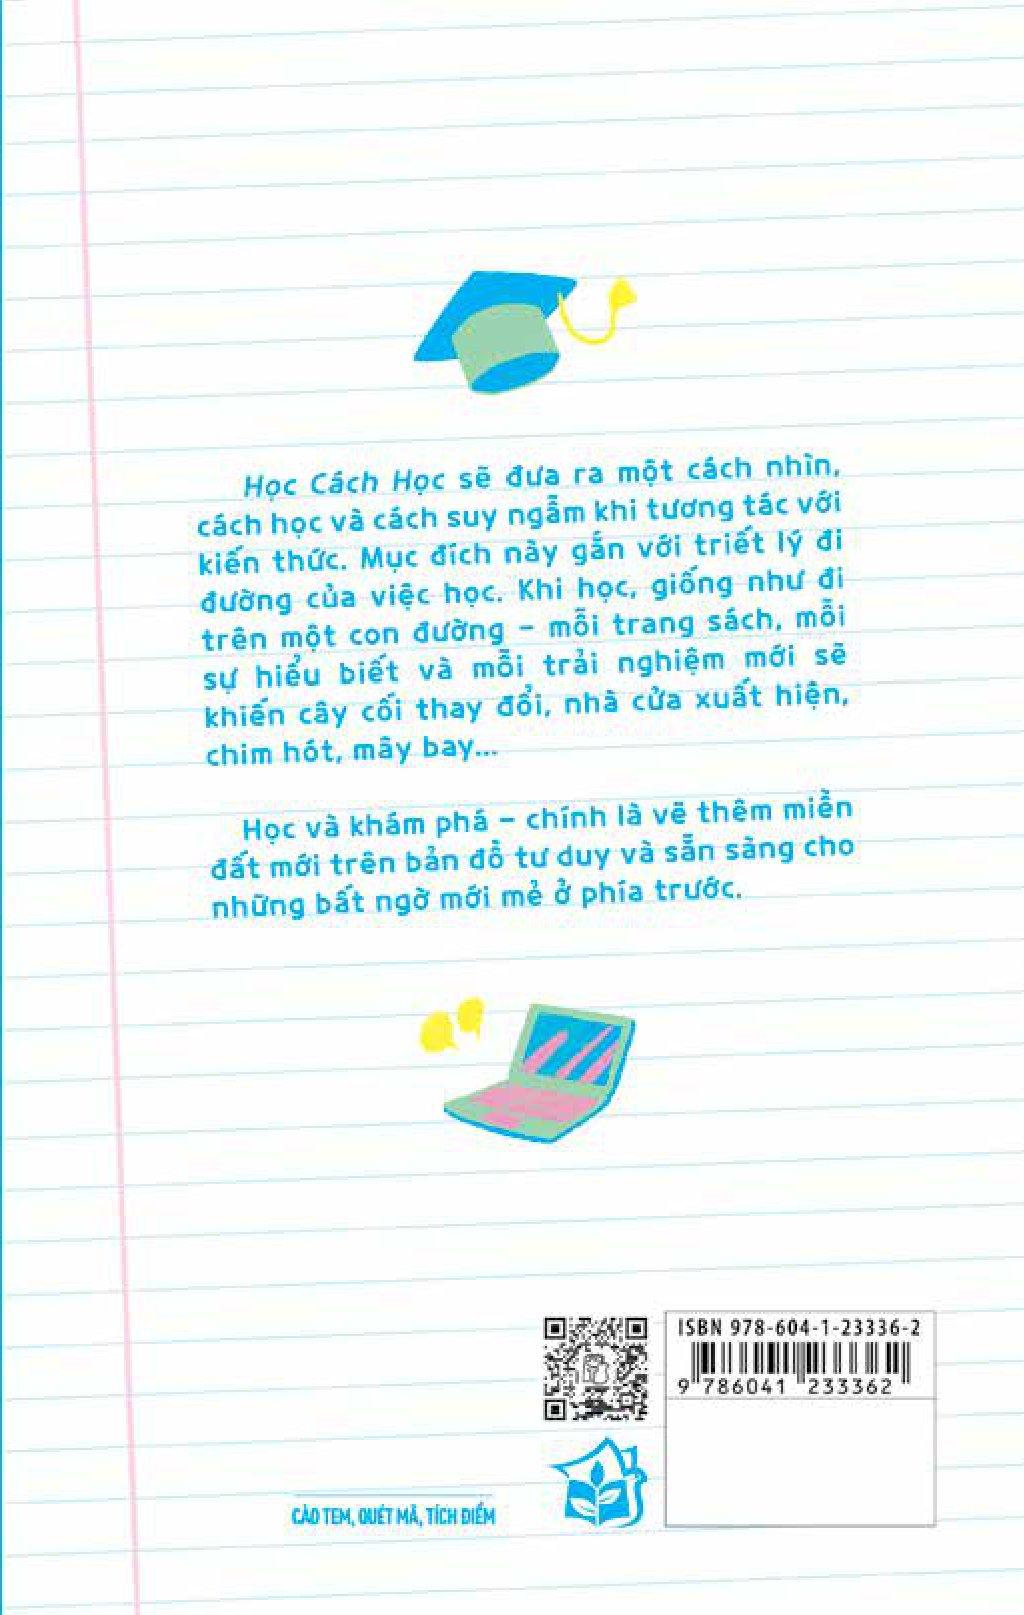 Học Cách Học sẽ đưa ra một cách nhìn,
cách học và cách suy ngẫm khi tương tác với
kiến thức. Mục đích này gắn với triết lý đi
đường của việc học. Khi học, giống như đi
trên một con đường – mỗi trang sách, mỗi
sự hiểu biết và mỗi trải nghiệm mới sẽ
khiến cây cối thay đổi, nhà cửa xuất hiện,
chim hót, mây bay...
Học và khám phá – chính là vẽ thêm miền
đất mới trên bản đồ tư duy và sẵn sàng cho
những bất ngờ mới mẻ ở phía trước.
ISBN 978-604-1-23336-2
9 786041 233362
CÀO TEM, QUÉT MÃ, TÍCH ĐIỂM